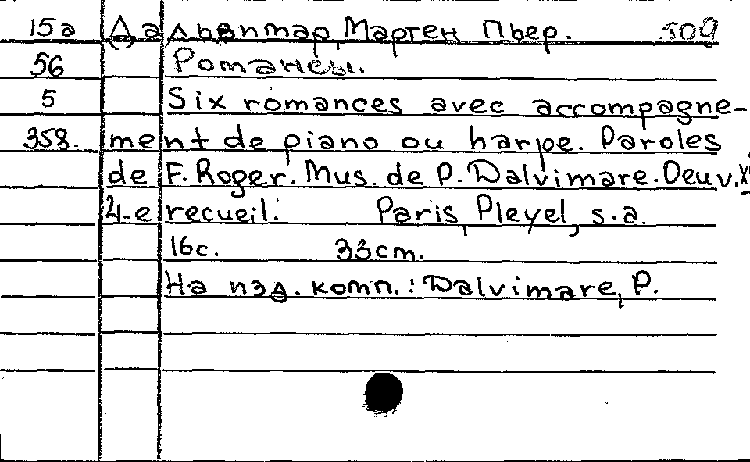 15а Дальвимар, Мартен Пьер. 509
56 Романсы.
5 Six romances avec accompagne-
358. ment de piano ou harpe. Paroles
de F. Roger. Mus. de P. Dalvimare. Oeuv.
4-e recueil. Paris, Pleyel, s.a.
16с. 33cm.
На изд. комп.: Dalvimare, P.